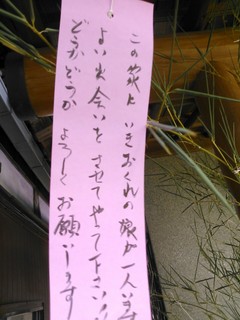 この家に いきおくれの娘が一人います
よい出会いをさせてやって下さい！
どうかどうか よろしくお願いします